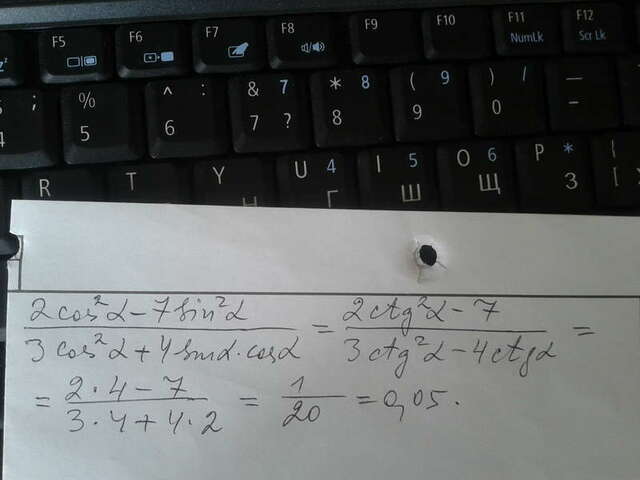 F5 F6 F7 F8 F9 F10 F11 F12
NumLk Scr Lk
% ^ : & 7 * 8 ( 9 ) / —
; 5 6 7 ? 8 9 0 -
R T Y U 4 I 5 O 6 P *
Г Ш Щ З
2cos²α-7sin²α / 3cos²α+4sinα·cosα = 2ctg²α-7 / 3ctg²α-4ctgα =
= 2·4-7 / 3·4+4·2 = 1/20 = 0,05.